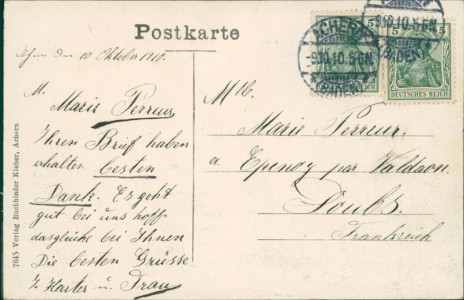 Postkarte
Achern den 10 Oktober 1910.
M.
Marie Perreur
Ihren Brief haben
erhalten besten
Dank. Es geht
gut bei uns hoff-
dasgleiche bei Ihnen
Die besten Grüsse
J. Harter u. Frau
7645 Verlag Buchbinder Kleber, Achern
ACHERN
-9.10.10.5-6N.
(BADEN)
5
DEUTSCHES REICH
Mlle.
Marie Perreur.
a Epenoy par Valdaon.
Doubs.
Frankreich